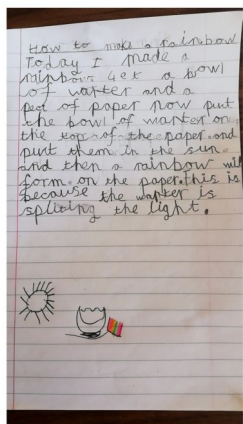 How to make a rainbow
Today I made a
rainbow. Get a bowl
of warter and a
pect of paper now put
the bowl of warter on
the top of the paper and
purt them in the sun
and then a rainbow will
form on the paper. This is
because the warter is
spliting the light.